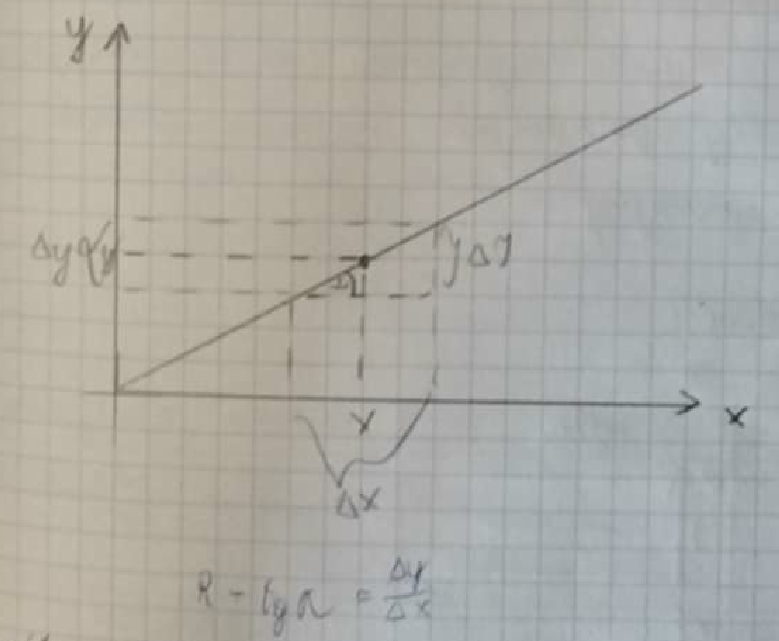 y
Δy y
Δy
x
x
Δx
R - tg α = Δy/Δx